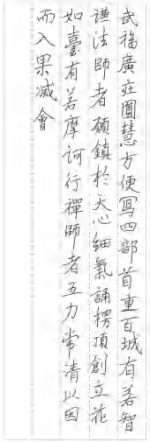 武福廣莊圓慧方便寫四部首重百城有若智
謙法師者碩鎮於天心細氣誦楞頂創立花
如臺有若摩訶行禪師者五力常清以因
而入果滅會